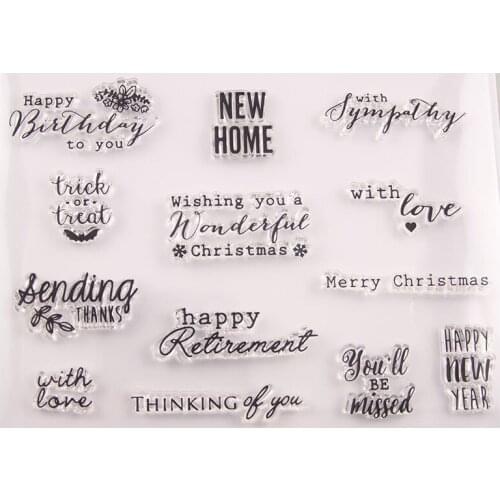 Happy
Birthday
to you
NEW
HOME
with
Sympathy
trick
or
treat
Wishing you a
Wonderful
Christmas
with
love
Merry Christmas
Sending
THANKS
happy
Retirement
with
love
THINKING of you
You'll
BE
missed
HAPPY
NEW
YEAR